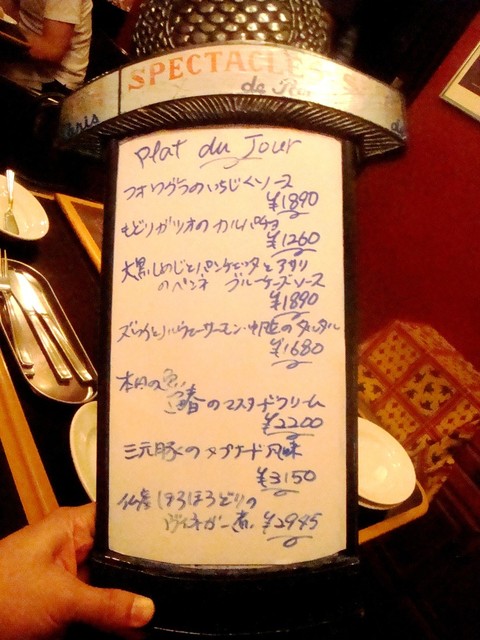 SPECTACLES
de Paris
Paris
de
Plat du Jour
フォワグラのいちじくソース
¥1890
もどりガツオのカルパッチョ
¥1260
大黒しめじとパンチェッタとアサリ
のペンネ ブルーチーズソース
¥1890
ズワイガニとノルウェーサーモン・帆立のタルタル
¥1680
本日の魚、
鰆のマスタードクリーム
¥2200
三元豚のタプナード風味
¥3150
仏産ほろほろどりの
ヴィネガー煮 ¥2945